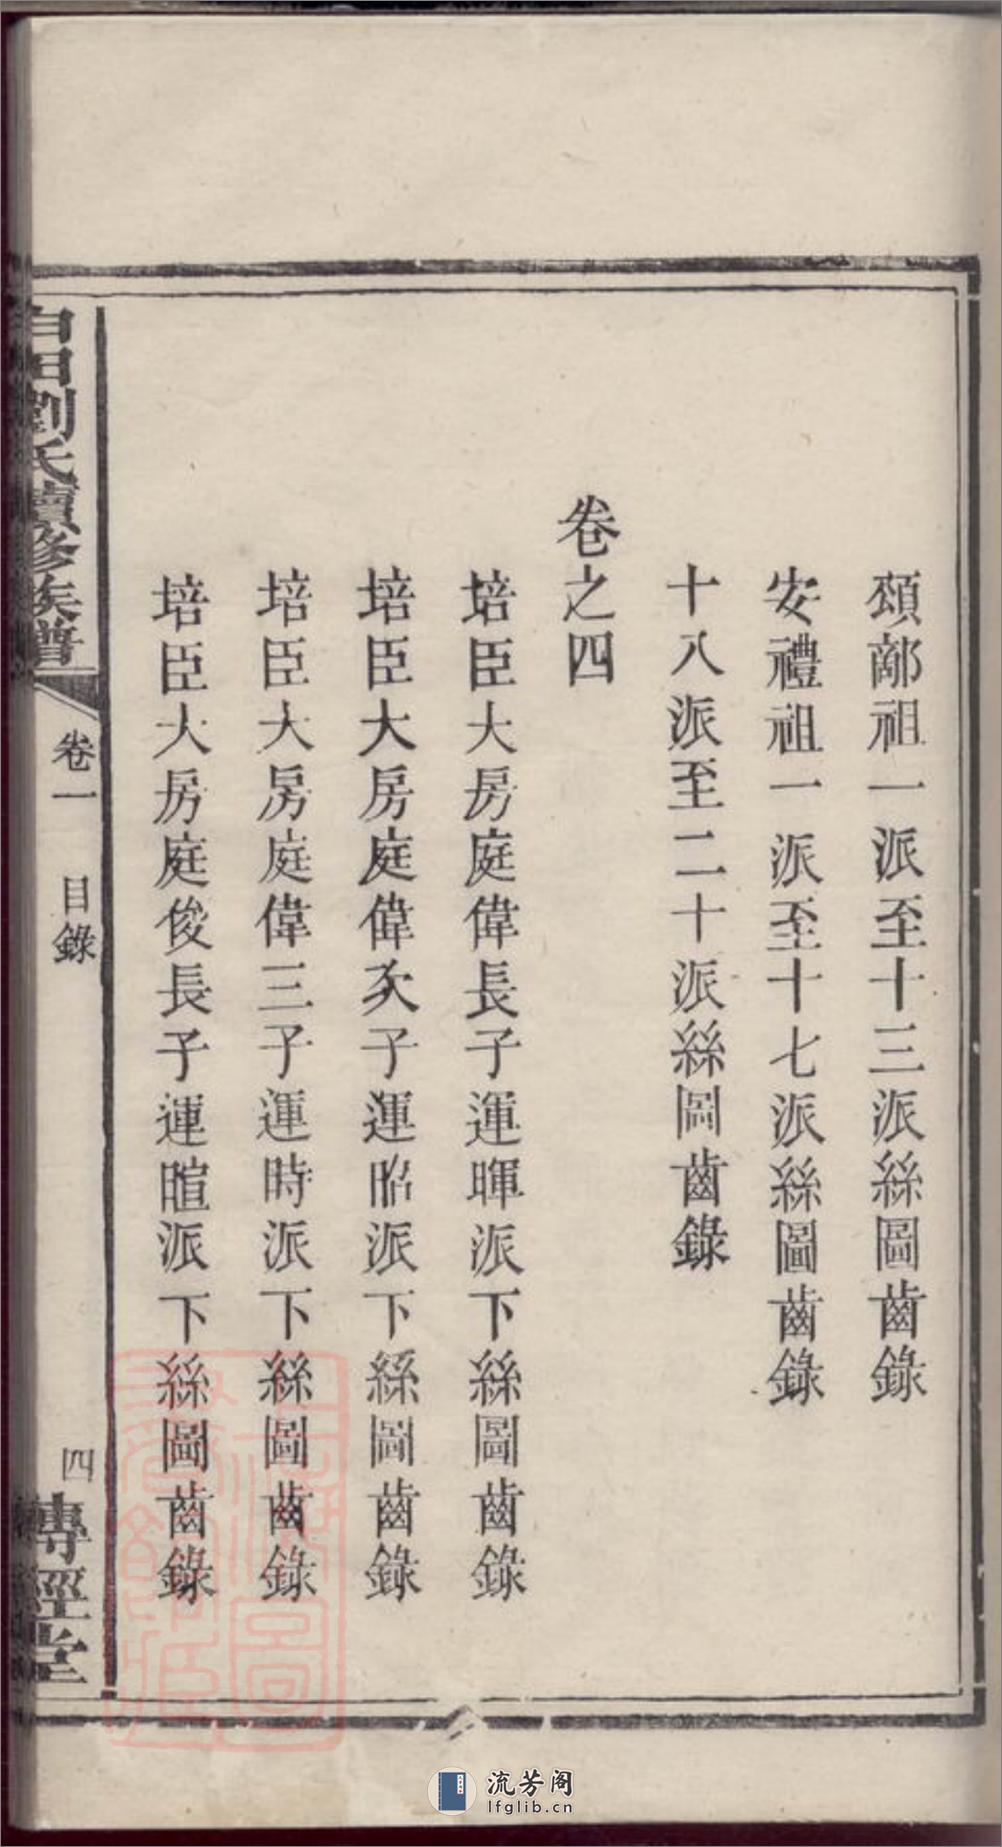 頌鄺祖一派至十三派絲圖齒錄
安禮祖一派至十七派絲圖齒錄
十八派至二十派絲圖齒錄
卷之四
培臣大房庭偉長子運暉派下絲圖齒錄
培臣大房庭偉次子運昭派下絲圖齒錄
培臣大房庭偉三子運時派下絲圖齒錄
培臣大房庭俊長子運暄派下絲圖齒錄
白田劉氏續修族譜
卷一
目錄
四
傳經堂
流芳阁
lfglib.cn